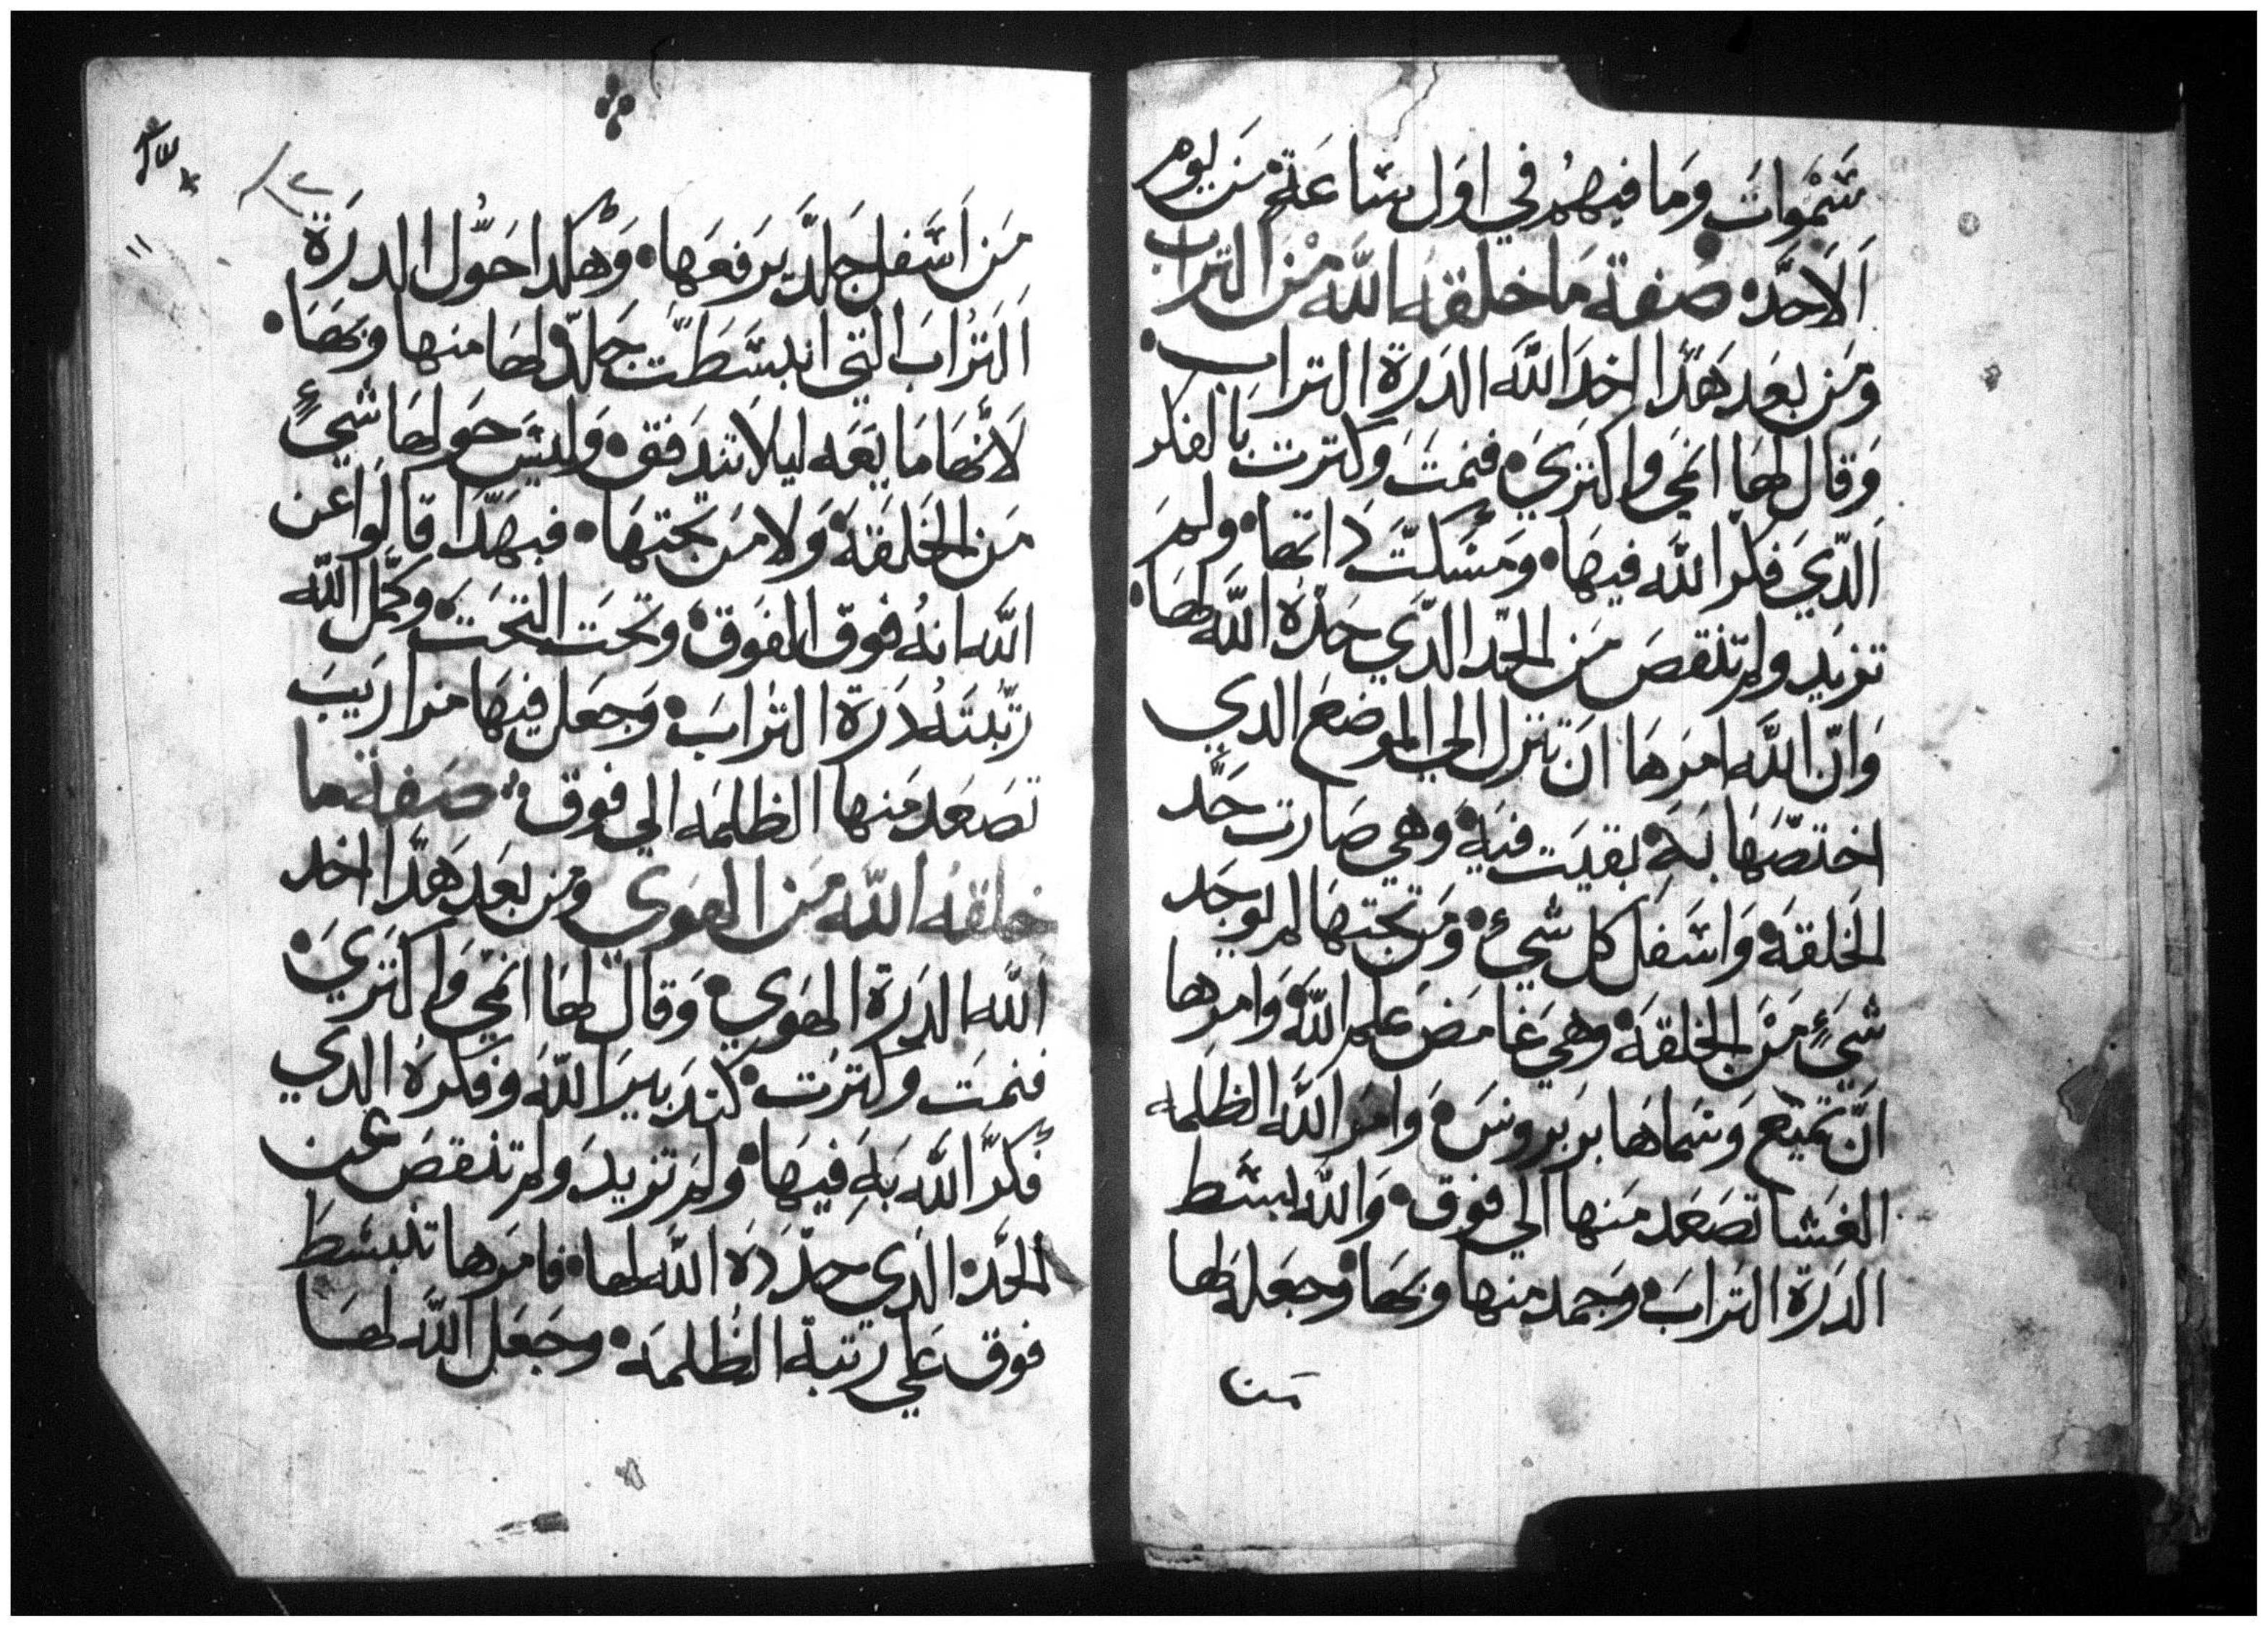 سَمْوات وَما فيهم في اوَل ساعَة مَن يوم
اَلاحَد صَفة مَا خلقه اللَّه مَن التراب
وَمَن بعَد هَدا اخدَ اللَّه الدَرة التراب
وَقال لهَا انمَي وَاكتري فنمَت وَكترت بَالفكر
اَلدّي فكر اللَّه فيهَا وَمسَكت داتها ولمَ
تزيَد ولم تنقصَ مَن الحَد الدّي حَدهُ اللَّه لهَا
وَانّ اللَّه امرَها انَ تنزل الي الموضعَ الدي
اختصّهَا بَه بقيَت فيَه وَهي صَارت حَد
الخَلقة وَاسَفل كل شيء وَمَن تحتهَا لم يوجَد
شيَء مَن الخلقة وهي غامَض علم اللَّه وَامرها
انّ تميَع وَسَماهَا بربَروسَ وَامرَ اللَّه الظلمه
الغَشا تصَعَد مَنها الي فوق وَاللَّه بسَط
الدَرة الترابَ وَجمد منها وبَها وَجعَل لها
مَن
مَن اَسَفل جَلدّ يَرفعَها وَهكدا حَوّل الدرَة
اَلترابَ التي انبسَطتّ جَلدّ لها منها وبَهَا
لاَنهَا مَايعَه ليلا تندَفق وَليسَ حَولهَا شيء
مَن الخلقَة وَلا مَن تحتهَا فبهَدّا قالوا عن
اللَّه انهُ فوق الفوَق وتحَت التحَت وكمّل اللَّه
رتّبتهُ درَة الترابَ وَجعَل فيهَا مزاريَبَ
تصَعَد مَنها الظلمَه الي فوق صَفة ما
خلقهُ اللَّه مَن الهوَي وَمن بعَد هَدّا اخد
اَللَّه الدرَة الهوَي وَقال لها انمي وَاكتريَ
فنمَت وكترَت كتدَبير اللَّه وَفكرهُ الدي
فكرّ اللَّه بَه فيهَا وَلم تزيدَ وَلم تنقصَ عن
الحَد الدَي حدَدهَ اللَّه لها فامَرها تنبسَطَ
فوق عَلي رتبة الظلمَه وجعَل اللَّه لهَا